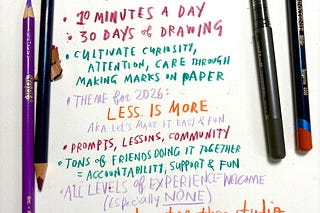 • 10 MINUTES A DAY
• 30 DAYS of DRAWING
• CULTIVATE CURIOSITY,
ATTENTION, CARE THROUGH
MAKING MARKS on PAPER
• THEME for 2026:
LESS IS MORE
AKA Let's MAKE IT EASY & FUN
• PROMPTS, LESSONS, COMMUNITY
• TONS of FRIENDS DOING IT TOGETHER
= ACCOUNTABILITY, SUPPORT & FUN
• ALL LEVELS of EXPERIENCE WELCOME
(ESPECIALLY NONE)